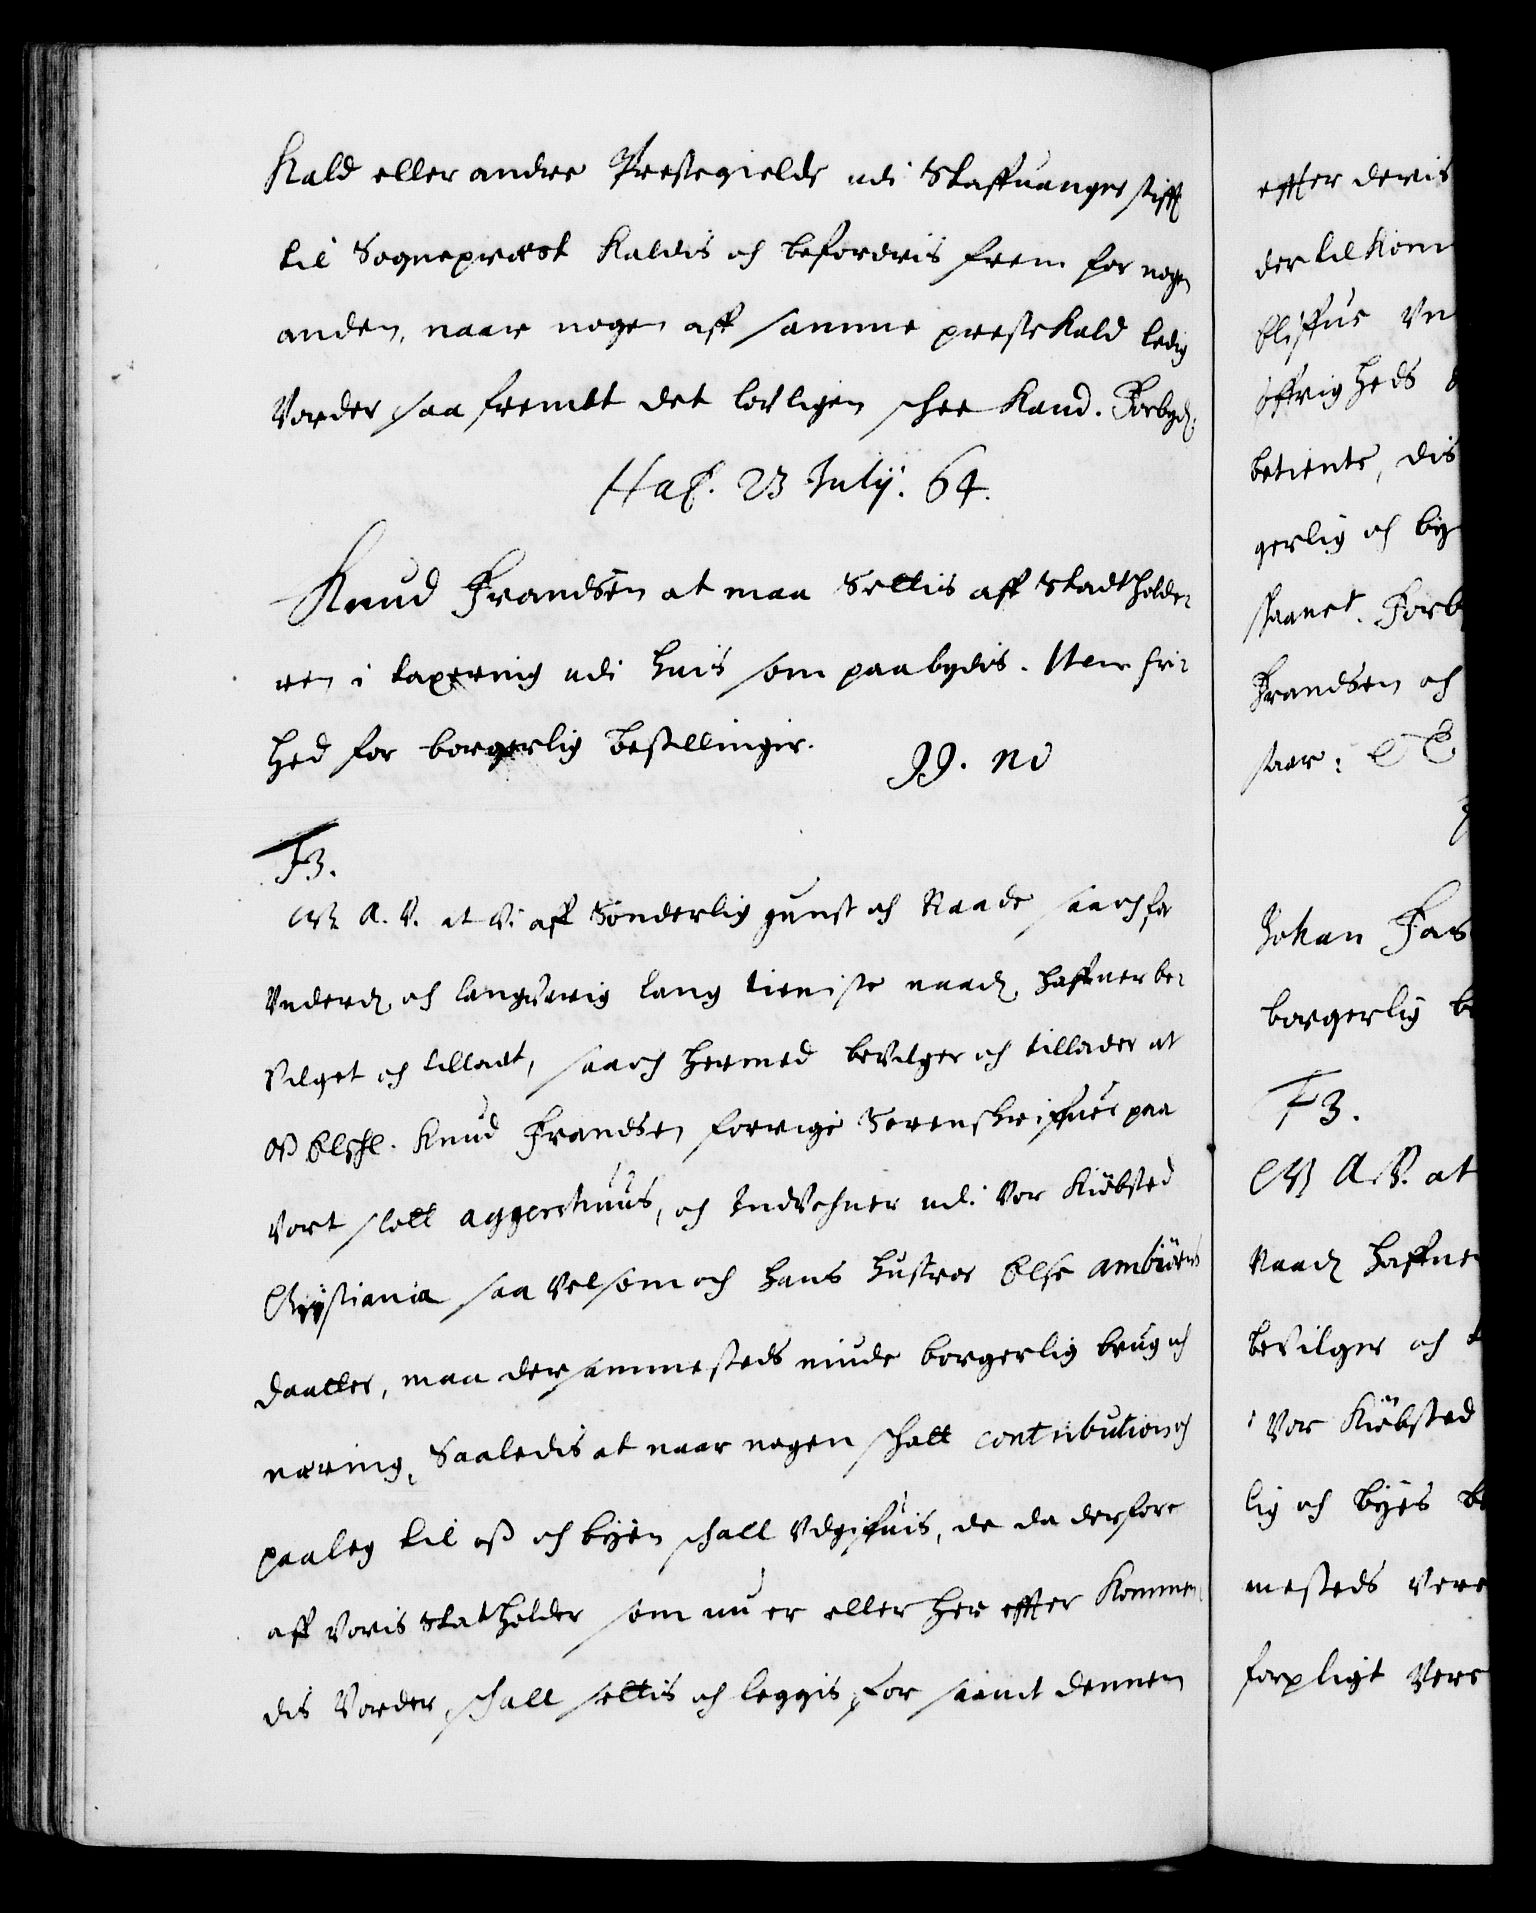 Kald eller andre Prestegielde udi Staffuanger stifft
til Sognepræst Kaldis och befordris frem for nogen
anden, naar nogen aff samme prestekald ledig
Vorder saa fremt det lovligen schee Kand. Forbyd.
Haf. 23 Julÿ. 64.
Knud Frandsen at maa Settis aff Stadtholde-
ren i taxering udi huis som paabydis. Item fri-
hed for borgerlig bestillinger. JJ. NV
F3.
G. A. V. at Vi aff Sönderlig gunst och Naade saa och for
Underd. och langvarig lang tieniste naad. haffuer be-
vilget och tilladt, saa och hermed bevilger och tillader at
oß Elschl. Knud Frandsen forrige Sorenskrifuer paa
vort slott aggershuus, och Indvohner udi Vor Kiöbsted
Christiania saa vel som och hans hustroe Else ambiörns
daatter, maa dersammesteds niude borgerlig brug och
næring, Saaledis at naar nogen schatt contribution och
paaleg til oß och byen schall Udgifuis, de da derfore
aff Voris Statholder som nu er eller her effter Kommen-
dis Vorder, schall settis och leggis, for saavit dennem
effter deris
der til kom
bliffue Vn
öffrigheds
betiente, dis
gerlig och by
skaanet. Forb
Frandsen och
staar:
Johan Fas
borgerlig b
F3.
G. A. V. at
Naad. haffue
bevilger och t
i Vor Kiöbsted
lig och byes be
mesteds Vere
forpligt Vere